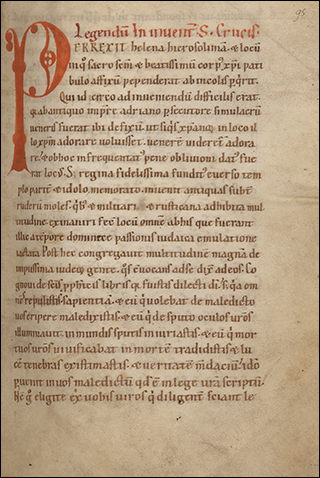 95
Legendũ In inuent̄. S. Crucis.
PERREXIT helena hierosolimã. & locũ
in q̊ sacro sc̄m & beatissimũ corp᷒ xp̄i pati
bulo affixũ pependerat ab incolis ꝑq̇rit.
Qui id circo ad inueniendũ difficilis erat.
q̇a ab antiquo inpr̄e adriano ꝑsecutore simulacrũ
ueneris fuerat ibi defixũ. ut siq̇s xp̄ianoꝝ in loco il
lo xp̄m adorare uoluisset. uenerẽ uideret̃ adora
re. & ob hoc infrequentat᷒ pene obliuioni dat᷒ fue
rat loc᷒. S; regina fidelissima fundit᷒ euerso tem
plo parit̃ & idolo memorato. inuenit antiquas subt̃
ruderũ moles. q̇b᷒ & militari & rusticana adhibita mul
titudine exinaniri fec̄ locũ omnẽ ab his que fuerant
illic a tẽpore dominice passionis iudaica emulatione
iactata. Post hec congregauit multitudinẽ magnã de
impissima iudeoꝝ gente. q̇s cuocans ad se dix̄ ad eos. Co
gnoui de sc̄is ꝓphetis libris q̇ fuistis dilecti dī. s; q̇a om
nẽ repulistis sapientiã. & eũ q̇ uolebat de maledicto
uos eripere maledixistis. & eũ q̇ de sputo oculos ur̄os
illuminauit. inmundis sputis iniuriastis. & eũ q̇ mor
tuos ur̄os uiuificabat in mortẽ tradidistis. & lu
cẽ tenebras existimastis. & ueritatẽ mdaciũ. ido
ꝑuenit in uos maledictũ qđ ẽ in lege ur̄a scriptũ.
eligite ex uobis uiros q̇ diligent̃ sciant le